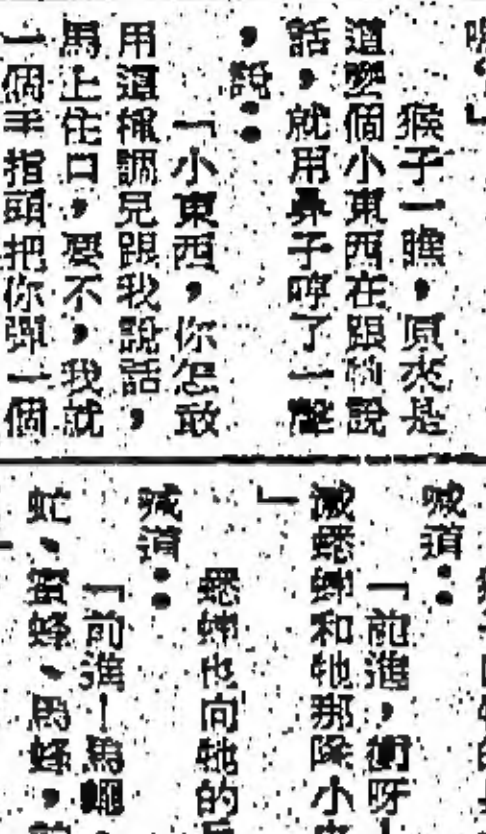 呢？」
猴子一瞧，原來是
這麼個小東西在跟牠說
話，就用鼻子哼了一聲
，說：
「小東西，你怎敢
用這種調兒跟我說話，
馬上住口，要不，我就
一個手指頭把你彈一個
喊道：
「前進，衝呀！
滅蟋蟀和牠那隊小
」
蟋蟀也向牠的
喊道：
「前進！馬蠅、
虻、蜜蜂、馬蜂，